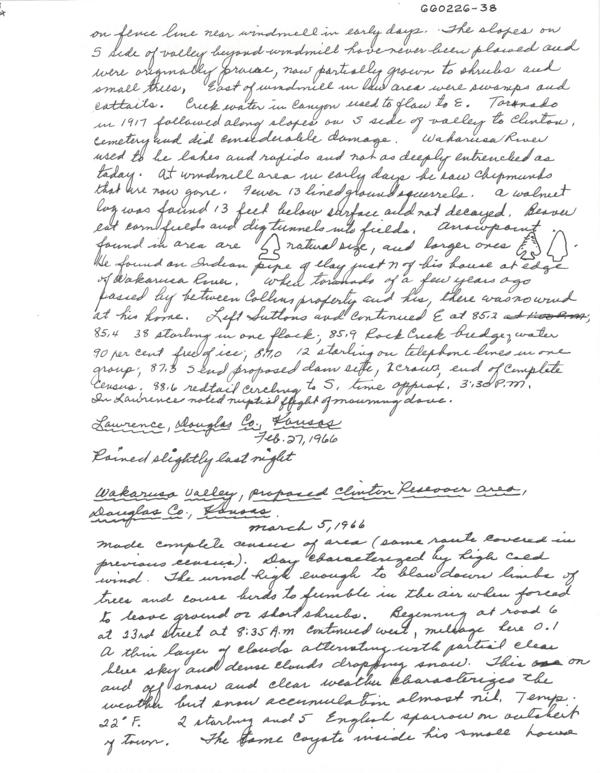 GG0226-38
on fence line near windmill in early days. The slopes on
S side of valley beyond windmill have never been plowed and
were originally prairie, now partially grown to shrubs and
small trees, East of windmill in low area were swamps and
cattails. Creek water in canyon used to flow to E. Toronado
in 1917 followed along slopes on S side of valley to Clinton,
cemetery and did considerable damage. Wakarusa River
used to be lakes and rapids and not as deeply entrenched as
today. At windmill area in early days he saw chipmunks
that are now gone. Fewer 13 lined ground squirrels. A walnut
log was found 13 feet below surface and not decayed. Beaver
eat corn fields and dig tunnels into fields. Arrowpoint
found in area are natural size, and larger ones
He found an Indian pipe of clay just N of his house at edge
of Wakarusa River. When toronado of a few years ago
passed by between Collins property and his, there was no wind
at his home. Left Suttons and continued E at 85.2
85.4 38 starling in one flock; 85.9 Rock Creek bridge, water
90 per cent free of ice; 87.0 12 starling on telephone lines in one
group; 87.3 S end proposed dam site, 2 crows, end of complete
census. 88.6 redtail circling to S, time approx. 3:30 P.M.
In Lawrence noted nuptial flight of mourning dove.
Lawrence, Douglas Co., Kansas
Feb. 27, 1966
Rained slightly last night
Wakarusa Valley, proposed Clinton Resevoir area,
Douglas Co., Kansas.
March 5, 1966
Made complete census of area (some route covered in
previous census). Day characterized by high cold
wind. The wind high enough to blow down limbs of
trees and cause birds to fumble in the air when forced
to leave ground or short shrubs. Beginning at road 6
at 23rd street at 8:35 A.M continued west, mileage here 0.1
A thin layer of clouds alternating with partial clear
blue sky and dense clouds dropping snow. This on
and off snow and clear weather characterizes the
weather but snow accumulation almost nil. Temp.
22° F. 2 starling and 5 English sparrow on outskirt
of town. The tame coyote inside his small house